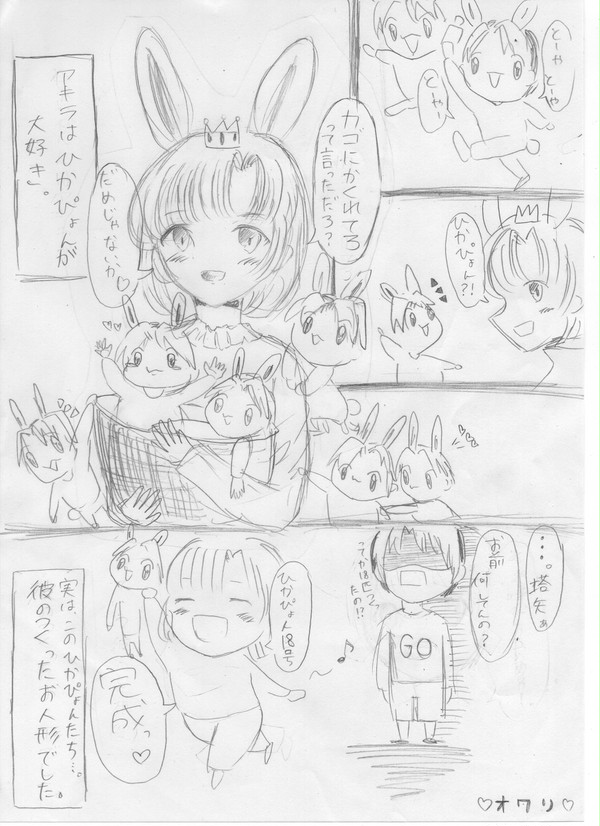 とーや
とーや
とーや
ひかぴょん?!
カゴにかくれてろ
って言っただろ?
だめじゃないか♡
アキラはひかぴょんが
大好き。
…。塔矢ぁ
お前
何してんの?
GO
ってか18匹つく
ったの!?
ひかぴょん18号
完成っ♡
実は、このひかぴょんたち…。
彼のつくったお人形でした。
♡オワリ♡